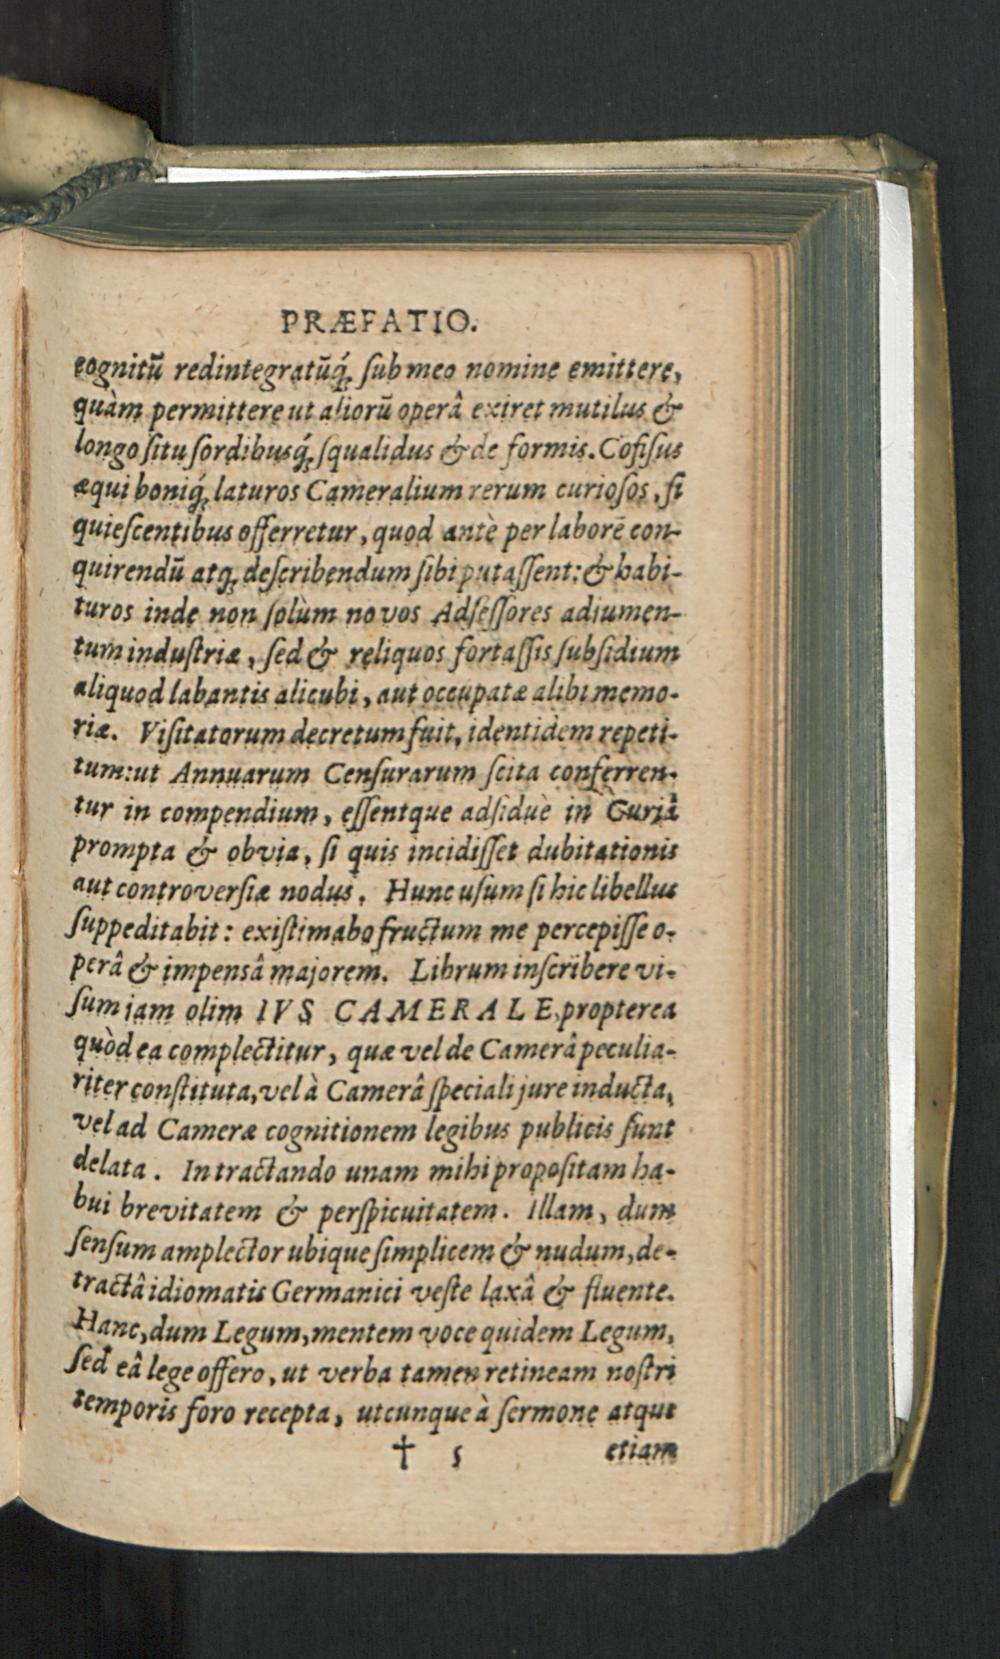 PRÆFATIO.
cognitū redintegratūq́; sub meo nomine emittere,
quàm permittere ut aliorū operâ exiret mutilus &
longo situ sordibusq́; squalidus & de formis. Cōfisus
æqui boniq́; laturos Cameralium rerum curiosos, si
quiescentibus offerretur, quod antè per laborē con-
quirendū atq; describendum sibi putassent: & habi-
turos inde non solùm novos Adsessores adiumen-
tum industriæ, sed & reliquos fortassis subsidium
aliquod labantis alicubi, aut occupatæ alibi memo-
riæ. Visitatorum decretum fuit, identidem repeti-
tum: ut Annuarum Censurarum scita conferren-
tur in compendium, essentque adsiduè in Curiâ
prompta & obvia, si quis incidisset dubitationis
aut controversiæ nodus. Hunc usum si hic libellus
suppeditabit: existimabo fructum me percepisse o-
perâ & impensâ majorem. Librum inscribere vi-
sum jam olim IVS CAMERALE, propterea
quòd ea complectitur, quæ vel de Camerâ peculia-
riter constituta, vel à Camerâ speciali jure inducta,
vel ad Cameræ cognitionem legibus publicis sunt
delata. In tractando unam mihi propositam ha-
bui brevitatem & perspicuitatem. Illam, dum
sensum amplector ubique simplicem & nudum, de-
tractâ idiomatis Germanici veste laxâ & fluente.
Hanc, dum Legum, mentem voce quidem Legum,
sed eâ lege offero, ut verba tamen retineam nostri
temporis foro recepta, utcunque à sermone atque
† 5 etiam